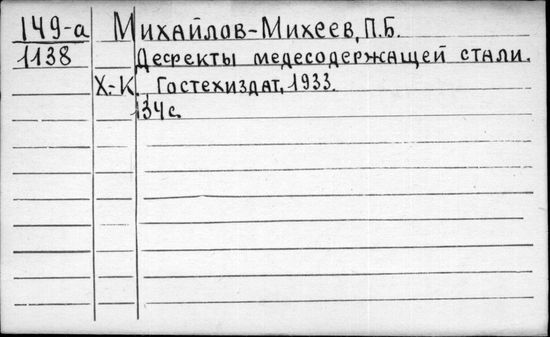 149-а Михайлов-Михеев, П.Б.
1138 Дефекты медесодержащей стали.
Х.-К. Гостехиздат, 1933.
134с.